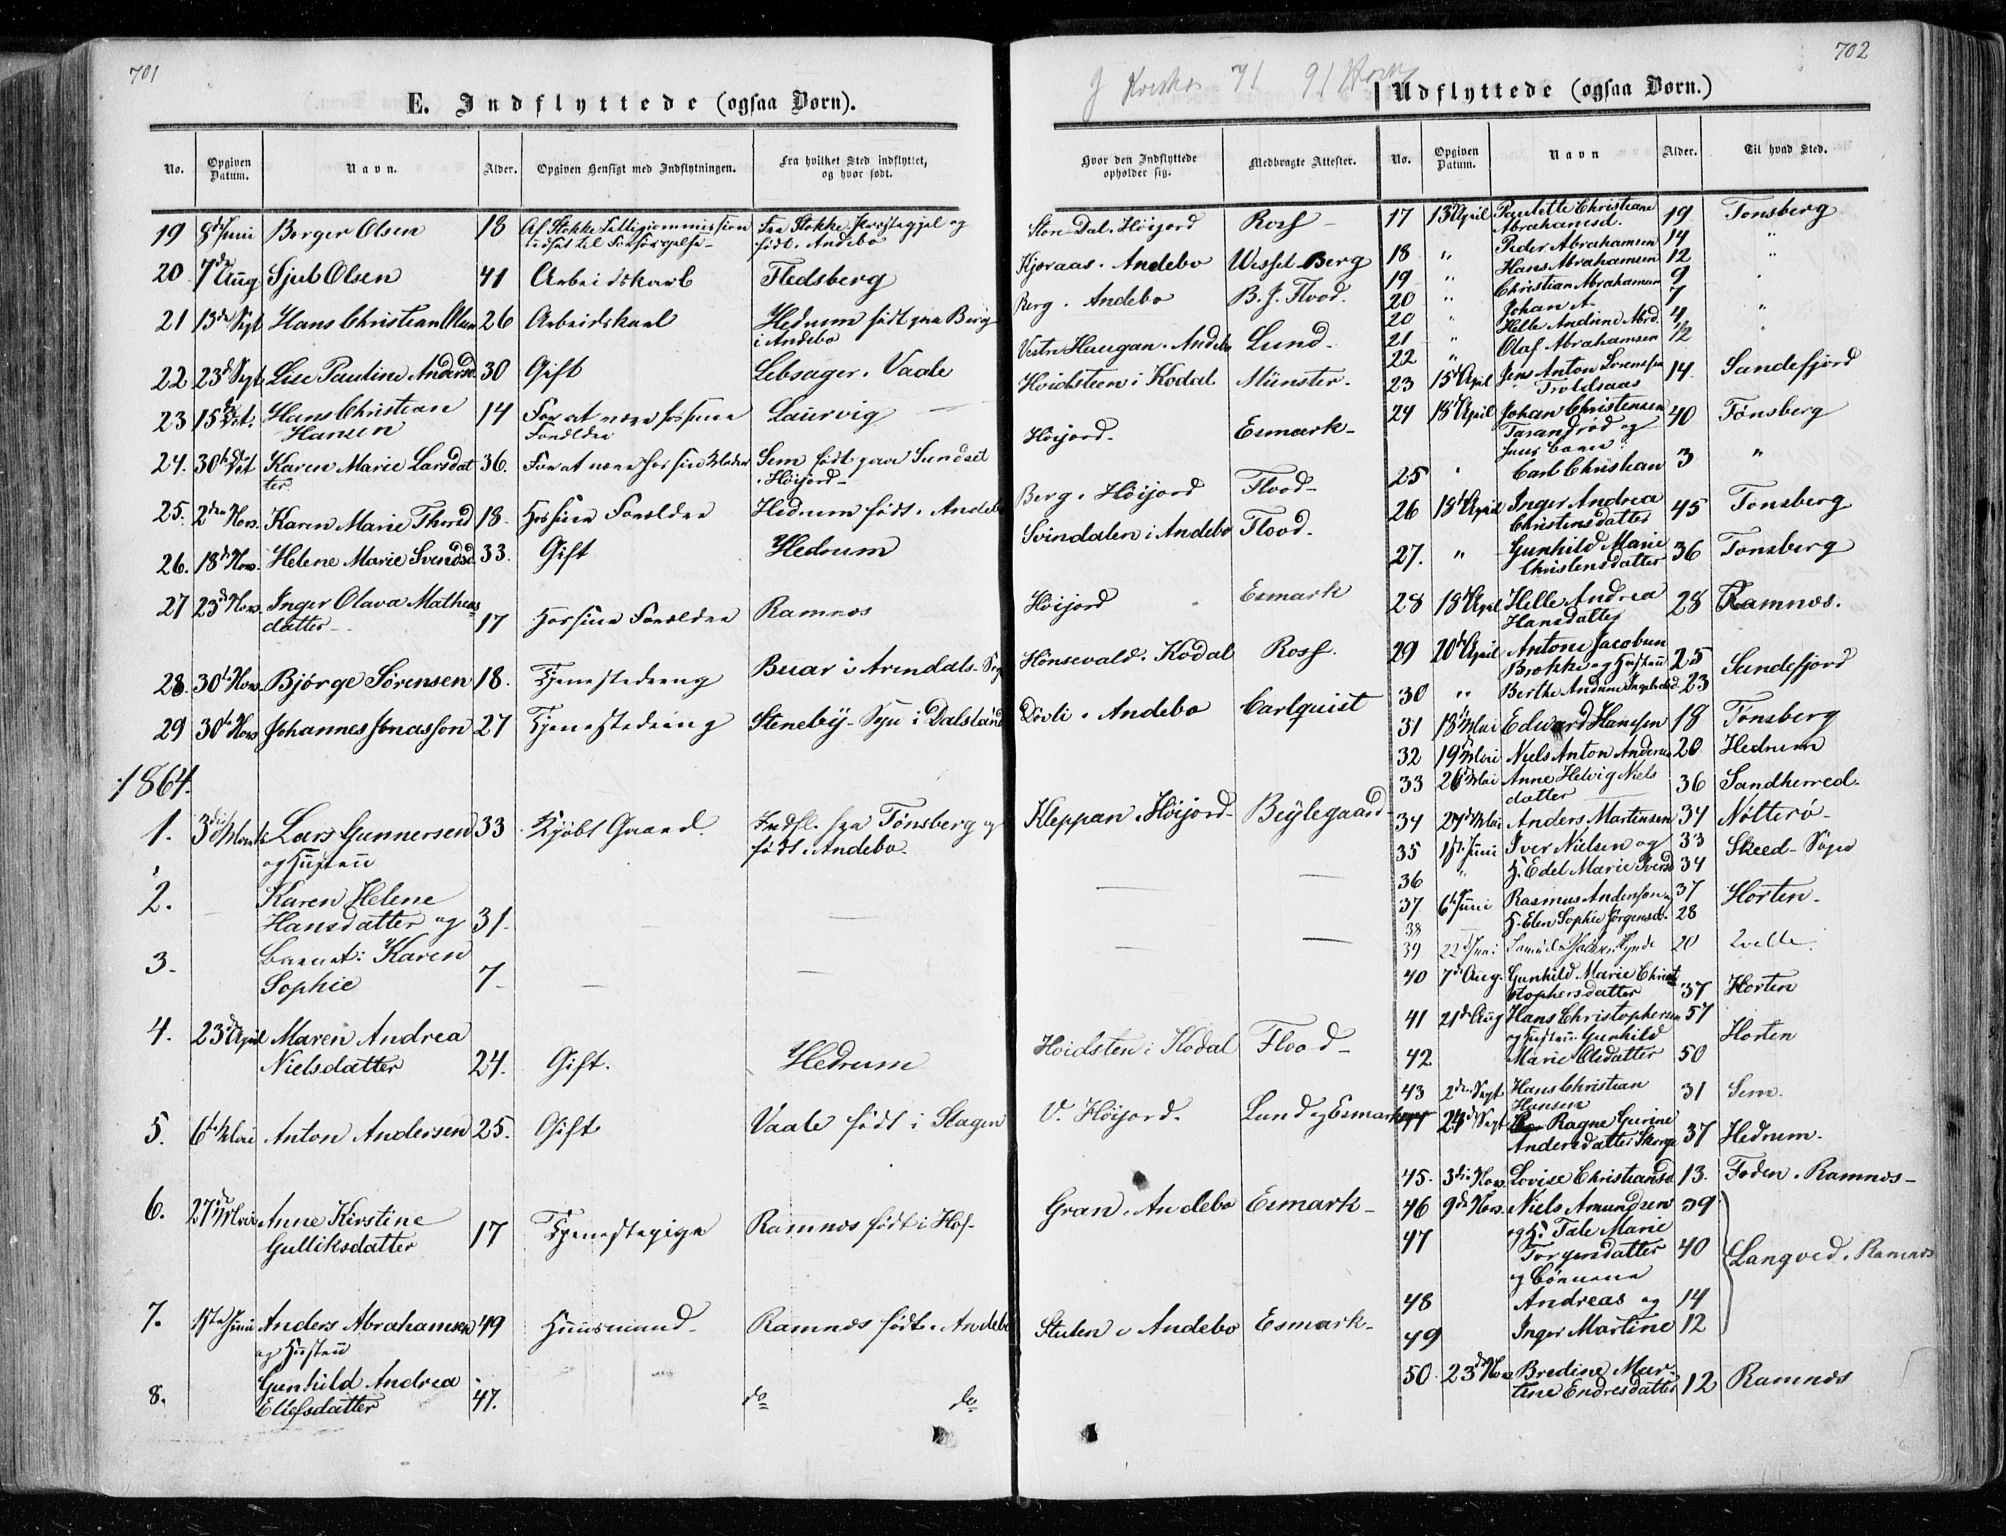 701
E. Indflyttede (ogsaa Børn).
No. Opgiven Datum. Navn. Alder. Opgiven Hensigt med Indflytningen. Fra hvilket Sted indflyttet, og hvor født.
19 8de Juni Berger Olsen 18 Af Stokke Fra Stokke Præstegjel og
født i Andebo
20 7de Aug Sjul Olsen 41 Arbeidskarl Fledsberg
21 13de Sept Hans Christian Olsen 26 Arbeidskarl Hedrum født paa Berg
i Andebo
22 23d Sept Lise Pauline Andersd 30 Gift Lebsager i Vaale
23 15de Oct. Hans Christian 14 For at være hos sine Laurvig
Hansen Forældre
24. 30te Oct Karen Marie Larsdat 36. For at være hos sin Moder Sem født paa Sundset
ter i Høijord
25. 2den Nov. Karen Marie Thorsd 18. Hos sine Forældre Hedrum født i Andebo
26. 18de Nov. Helene Marie Svendsd. 33. Gift Hedrum
27 23d Nov. Inger Olava Mathias 17 Hos sine Forældre Ramnæs
datter
28. 30te Nov. Bjørge Sørensen 18. Tjenestedreng Buar i Arendals Sogn
29 30te Nov Johannes Jonasson 27 Tjenestedreng Steneby Sogn i Dalsland
1864.
1. 3die Marts Lars Gunnersen 33 Kjøbt Gaard. Indfl. fra Tønsberg og
og Hustru født i Andebo.
2. Karen Helene
Hansdatter og 31.
3. Barnet: Karen
Sophie 7
4. 23d April Maren Andrea
Nielsdatter 24. Gift. Hedrum
5. 6te Mai Anton Andersen 25. Gift Vaale født i Slagen
6. 27de Mai Anne Kirstine
Gulliksdatter 17 Tjenestepige Ramnæs født i Hof
7. 1ste Juni Anders Abrahamsen 49 Huusmand Ramnæs født i Andebo
og Hustru
8. Gunhild Andrea
Ellefsdatter 47. do do
702
71 91
Hvor den Indflyttede opholder sig. Medbragte Attester.
Store Dal i Høijord Rosf
Kjøraas i Andebo Wessel Berg
Berg i Andebo B. J. Flood.
Vestre Haugan i Andebo Lund
Hvidsteen i Kodal Münster
Høijord Esmark
Berg i Høijord Flood
Svindalen i Andebo Flood
Høijord Esmark
Hønsevald i Kodal Rosf.
Døvli i Andebo Carlquist
Kleppan i Høijord Beylegaard
Hvidsten i Kodal Flood
V. Høijord. Lund og Esmark
Gran i Andebo Esmark
Stulen i Andebo Esmark
Udflyttede (ogsaa Børn.)
No. Opgiven Datum. Navn Alder. Til hvad Sted.
17 13de April Paulette Christiane 19 Tonsberg
Abrahamsd.
18 " Peder Abrahamsen 14 "
19 " Hans Abrahamsen 12 "
20 " Christian Abrahamsen 9
20 " Johan A 7
21 " Helle Andrine Abrd. 4 "
22 " Olaf Abrahamsen 1/2
23 15de April Jens Anton Svensen 14 Sandefjord
Troldsaas
24 18de April Johan Christensen 40 Tønsberg
Tarandrød og
hans barn
25 " Carl Christian 3 "
26 18de April Inger Andrea 45 Tonsberg
Christensdatter
27. " Gunhild Marie 36 Tonsberg
Christensdatter
28 18de April Helle Andrea 28 Ramnæs.
Hansdatter
29 20de April Antoni Jacobsen 25 Sandefjord
Brokke og Hustru
30 " Berthe Andrine Ingebretsd 23
31 18de Mai Edward Hanssen 18 Tønsberg
32 19de Mai Niels Anton Andersen 20 Hedrum
33 26de Mai Anne Helvig Niels 36 Sandherred.
datter
34 27de Mai Anders Martinsen 34 Nøtterø
35 1ste Juni Iver Nielsen og 33 Skeed Sogn
36 " H. Edel Marie Iversd 34
37 6te Juni Rasmus Andersson og 37 Horten.
38 H. Elen Sophie Jørgensd. 28
39 22d Juni 20
40 7de Aug. Gunhild Marie Christ
stophersdatter 37 Horten
41 21de Aug Hans Christophersen 57
og Hustru Gunhild Horten
42 Marie Olsdatter 50
43 2den Sept Hans Christian 31 Sem.
Hansen
44 24de Sept Ragne Gurine
Andersdatter Skorge 37 Hedrum.
45. 3die Nov. Lovise Christiansd 13. Foden i Ramnæs
46 9de Nov. Niels Amundsen 39
47 og H. Tale Marie
Torgersdatter 40 Langved i Ramnæs
og Børnene
48 Andreas og 14
49 Inger Martine 12
50 23de Nov Bredine Mar
tine Endresdatter 12 Ramnæs